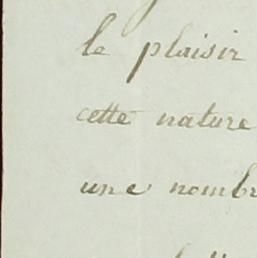 le plaisir
cette nature
une nombr